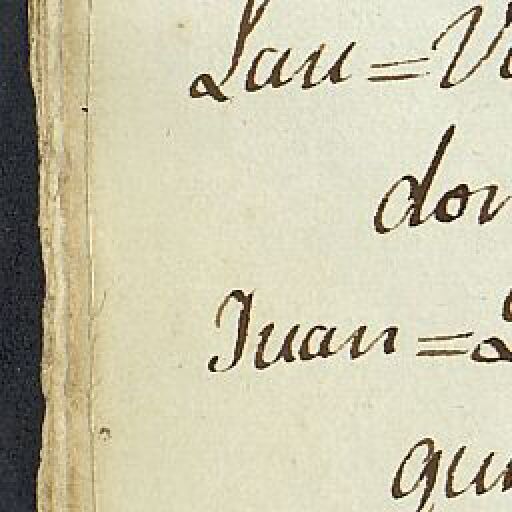 Lau = V
don
Juan = L
qui